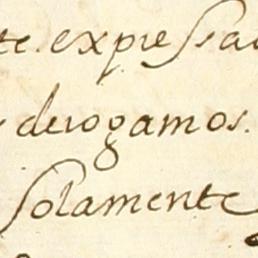 te. expresad
derogamos.
solamente